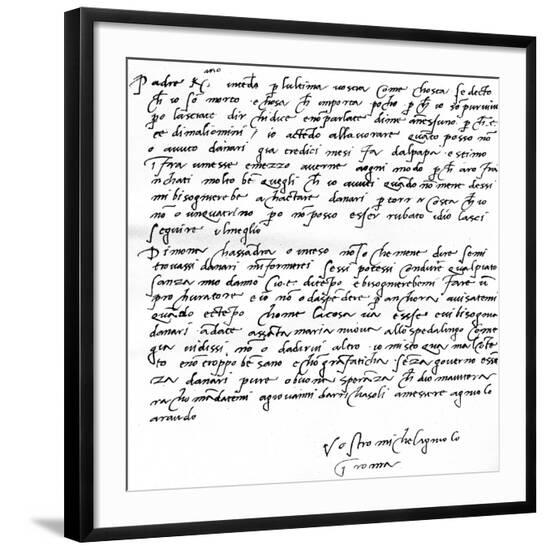 Padre K.mo intedo p lultima vostra come chosta se decto
ch io so morto e chosa ch importa pocho p ch io so pur vivo
po lasciate dir chi dice e no parlate di me a nessuno p ch e
ce di mali omini / io actedo allavorare quato posso no
o avuto danari gia tredici mesi fa dal papa e stimo
ifra u mese e mezzo averne a ogni modo p ch aro fra
nchati molto be quegli ch io avuti quado no me ne dessi
mi bisognierebe achactare danari p tornar costa ch io
no o un quatrino po no posso esser rubato idio lasci
seguire il meglio
Di mona chassadra o inteso no so che me ne dire se mi
trovassi danari m informerei se si potessi condure qua l piato
sanza mio danno cioe di tepo e bisognierebemi fare u
prochuratore e io no o da spedere p anchora avisatemi
quado e tepo chome la cosa va e sse vi bisognia
danari adate a ssata maria nuova allo spedalingo come
gia vi dissi no o da dirvi altro io mi sto qua malcote
to e no troppo be sano e cho gra faticha seza governo e sse
za danari pure o buona speraza ch dio m autera
racho madatemi a giovanni da richasoli a messere agniolo
araldo
Vostro michelagniolo
i roma